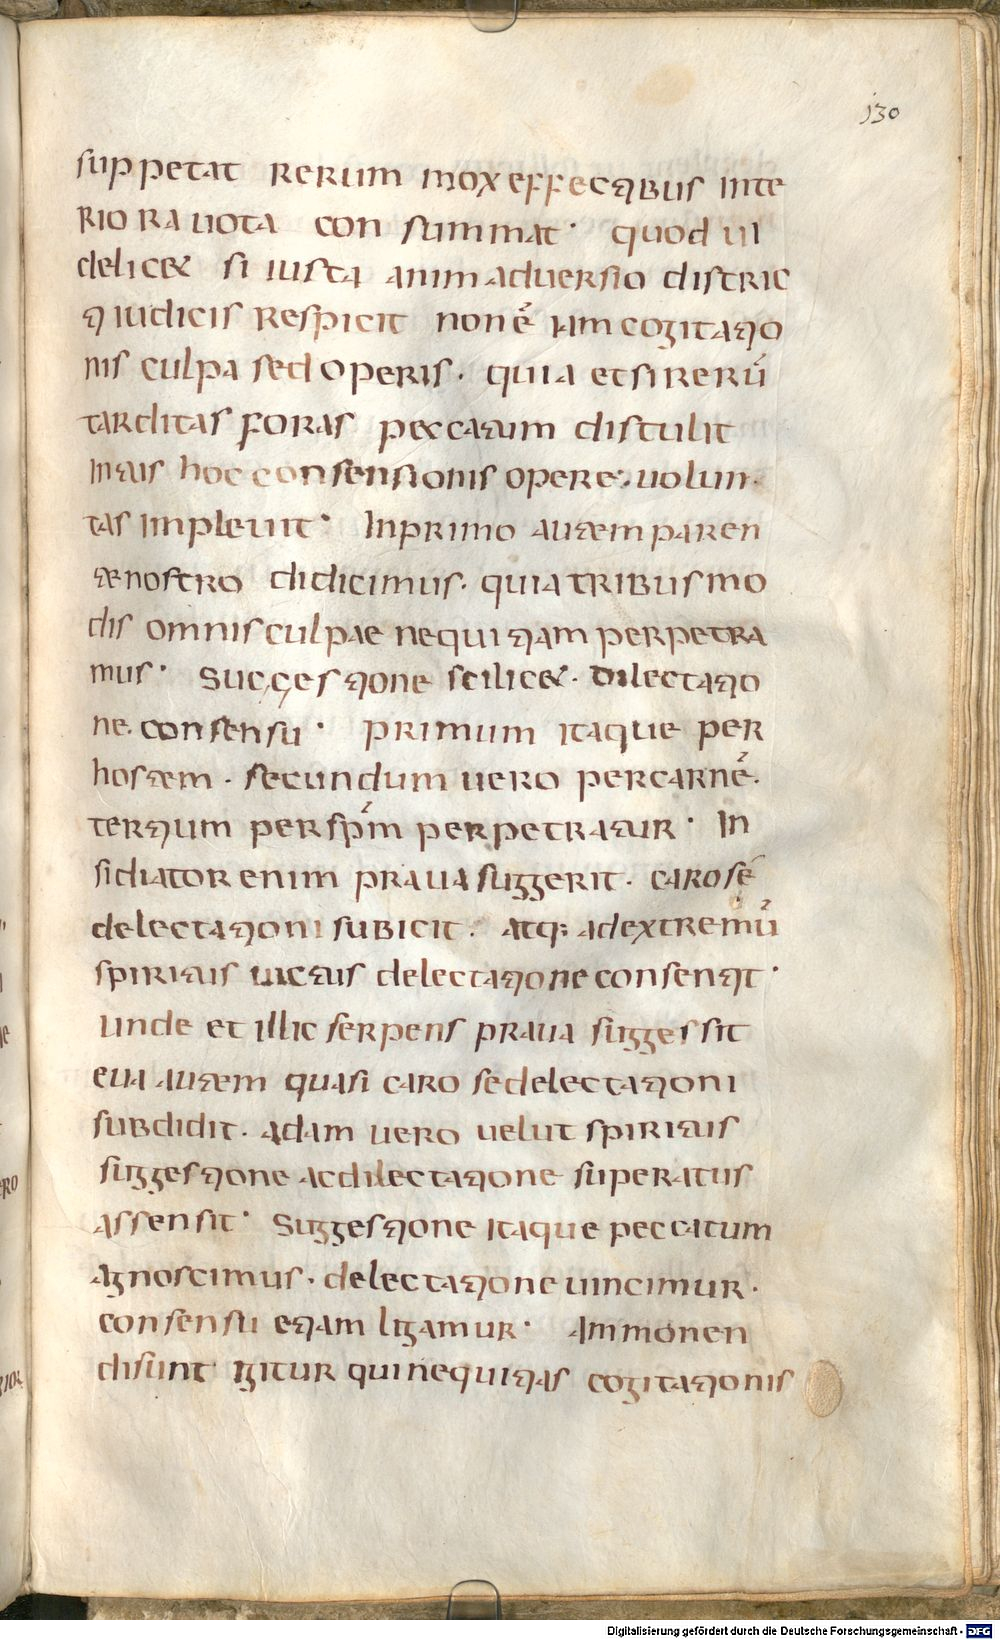 130
suppetat rerum mox effectibus inte
riora uota consummat· quod ui
delicet si iusta animaduersio distric
ti iudicis respicit non ē iam cogitatio
nis culpa sed operis· quia et si rerū
tarditas foras peccatum distulit
intus hoc consensionis opere uolun·
tas impleuit· In primo autem paren
te nostro didicimus· quia tribus mo
dis omnis culpae nequitiam perpetra
mus· Succestione scilicet· dilectatio
ne· consensu· primum itaque per
hostem· secundum uero per carnē·
tertium per spm̄ perpetratur· In
sidiator enim praua suggerit· caro sē
delectationi subicit· atq; ad extremū
spiritus uictus delectatione consentit·
unde et illic serpens praua suggessit
eua autem quasi caro se delectationi
subdidit· adam uero uelut spiritus
suggestione ac dilectatione superatus
assensit· Suggestione itaque peccatum
agnoscimus· delectatione uincimur·
consensu etiam ligamur· Ammonen
di sunt igitur qui nequitias cogitationis
Digitalisierung gefördert durch die Deutsche Forschungsgemeinschaft - DFG